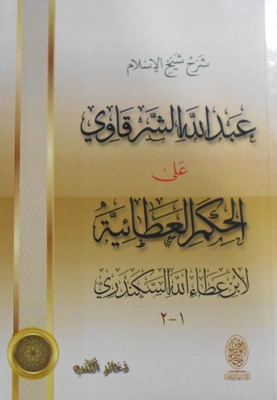 شرح شيخ الإسلام
عبد الله الشرقاوي
على
الحكم العطائية
لابن عطاء الله السكندري
١-٢
ذخائر الكتب